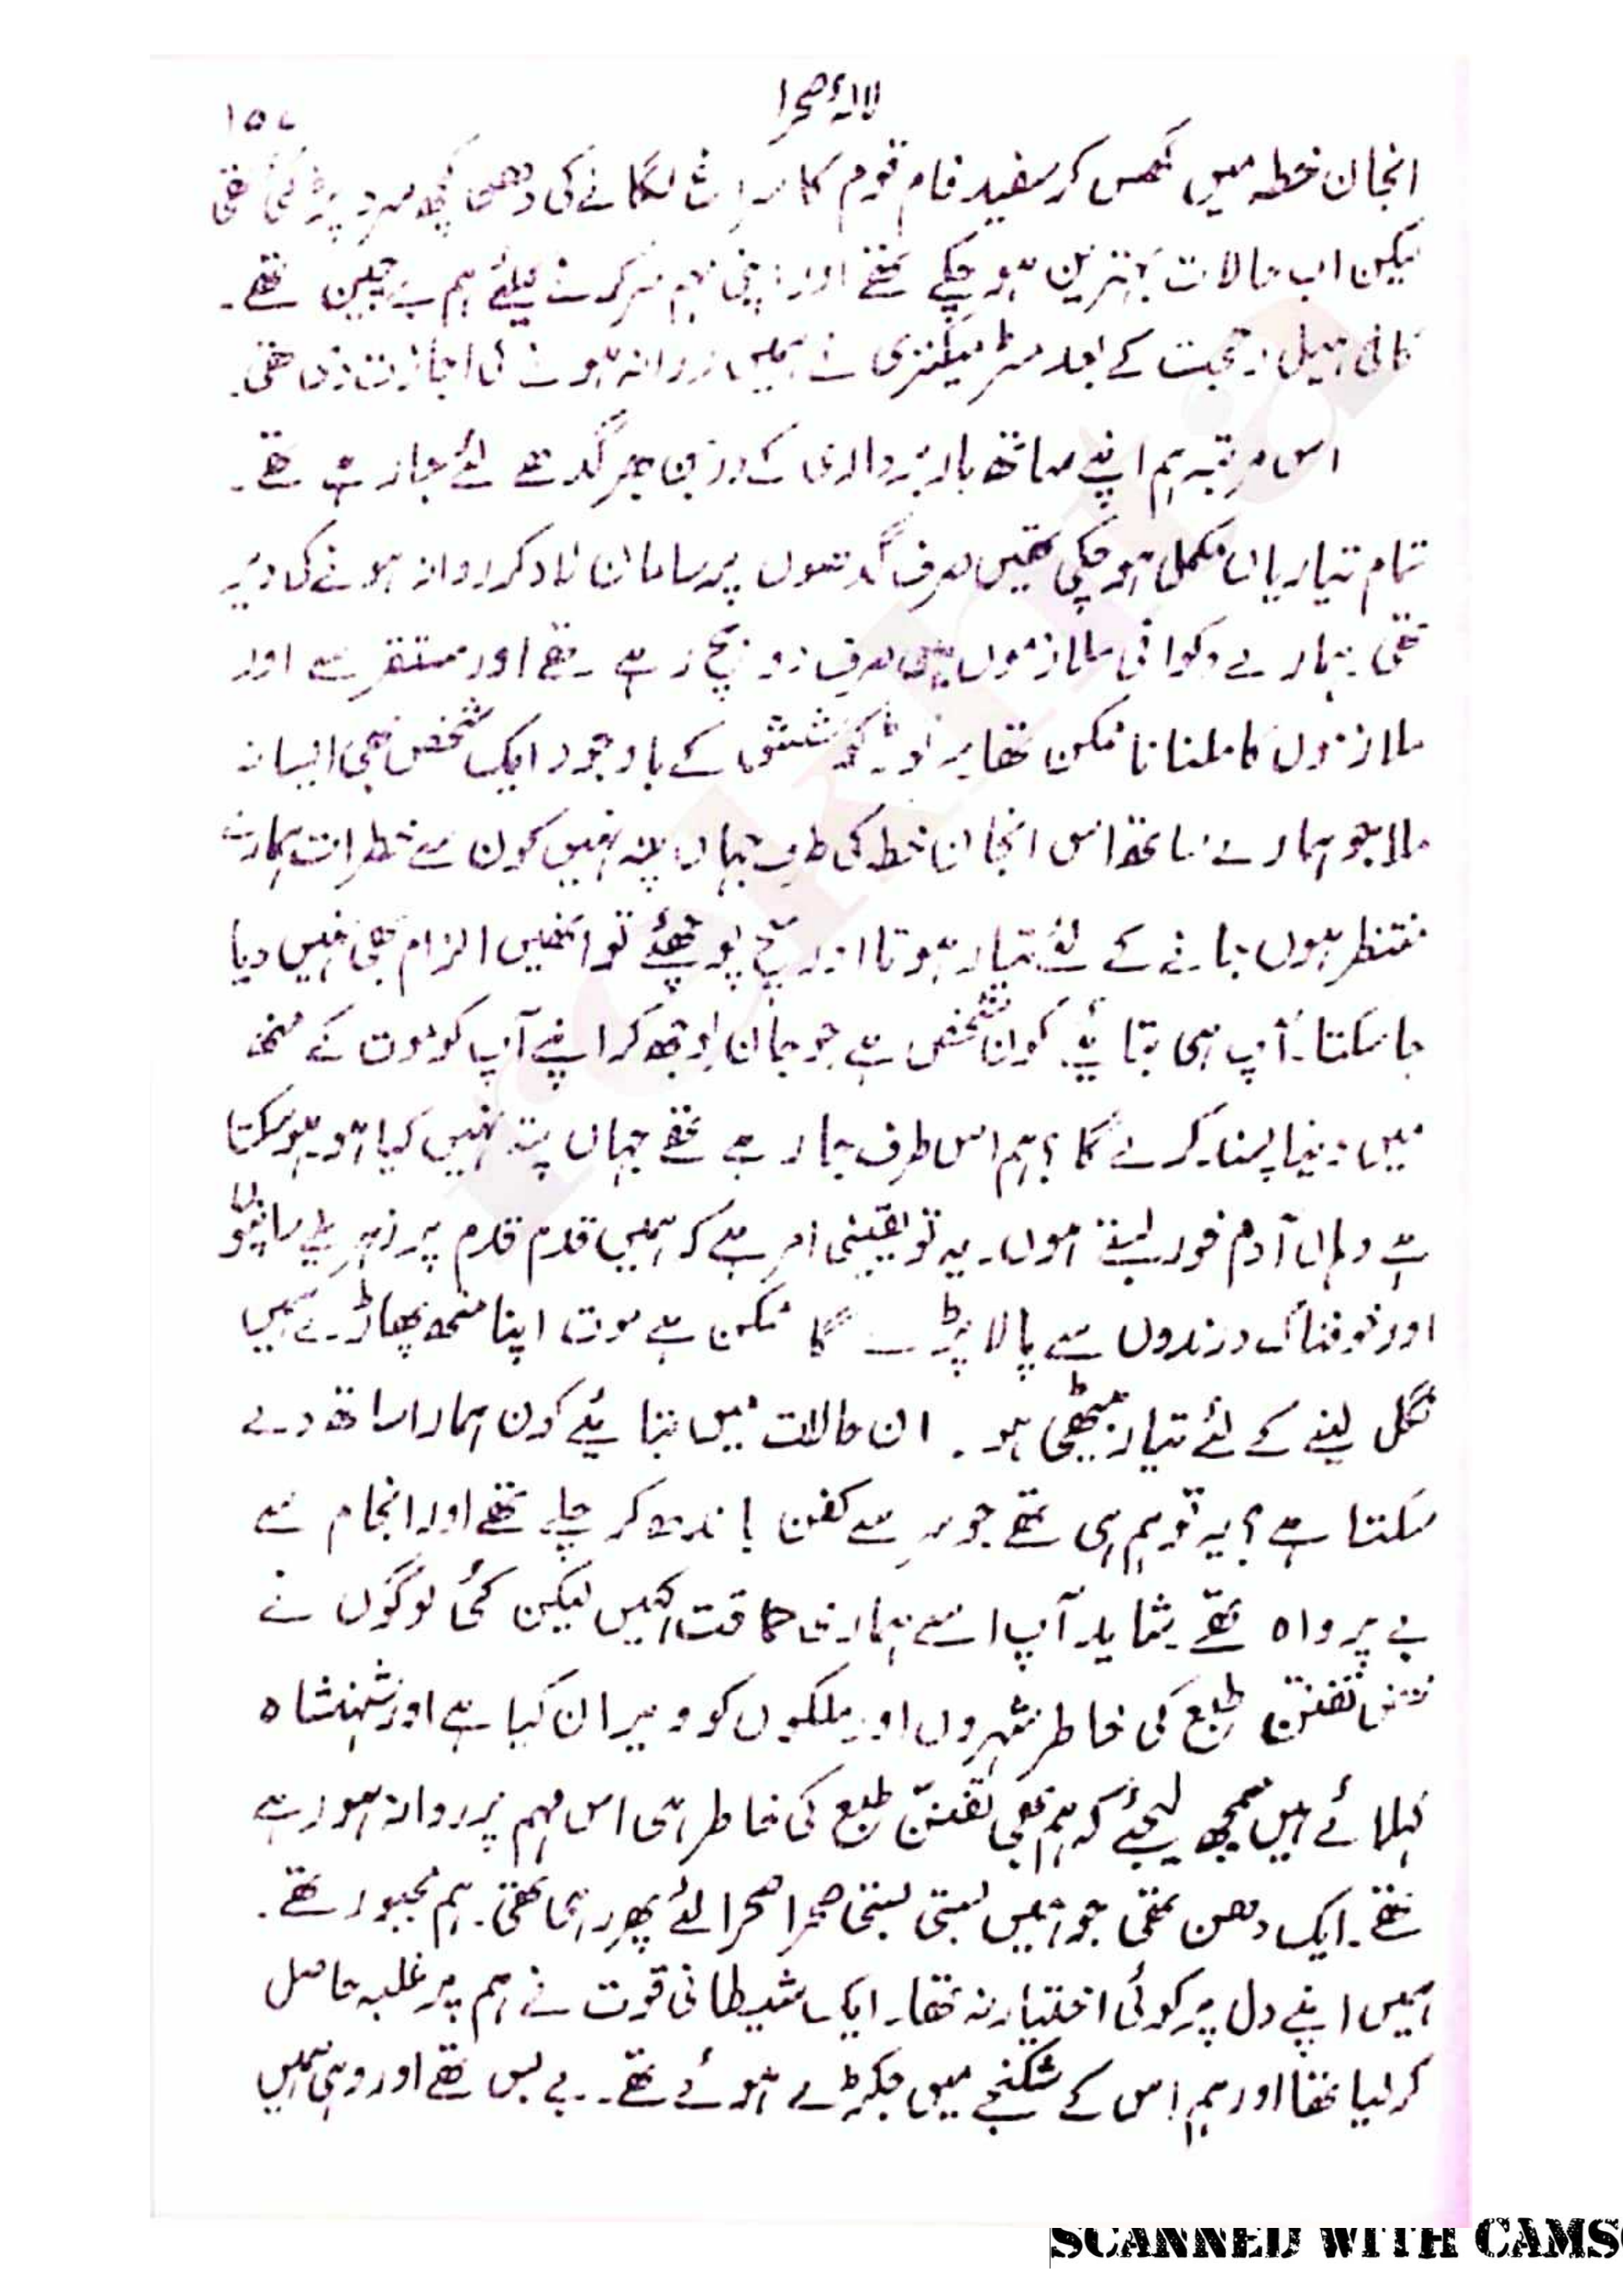 لالۂ صحرا
۱۵۷
انجان خطہ میں گھس کر سفید فام قوم کا سراغ لگانے کی دھن کچھ سرد پڑ گئی تھی
لیکن اب حالات بہترین ہو چکے تھے اور اپنی مہم سر کرنے کیلئے ہم بے چین تھے۔
کافی حیل و حجت کے بعد مسٹر میکنزی نے ہمیں روانہ ہونے کی اجازت دی تھی۔
اس مرتبہ ہم اپنے ساتھ بار برداری کے درزن بھر گدھے لئے جا رہے تھے۔
تمام تیاریاں مکمل ہو چکی تھیں صرف گدھوں پر سامان لاد کر روانہ ہونے کی دیر
تھی۔ ہمارے وکوافی ملازموں میں صرف دو بچ رہے تھے اور مستقر سے اور
ملازموں کا ملنا ناممکن تھا۔ کوشش کے باوجود ایک شخص بھی ایسا نہ
ملا جو ہمارے ساتھ اس انجان خطہ کی طرف جہاں پتہ نہیں کون سے خطرات ہمارے
منتظر ہوں جانے کے لئے تیار ہوتا اور سچ پوچھئے تو انھیں الزام بھی نہیں دیا
جا سکتا۔ آپ ہی بتائیے کون شخص ہے جو جان بوجھ کر اپنے آپ کو موت کے منھ
میں دینا پسند کرے گا؟ ہم اس طرف جا رہے تھے جہاں پتہ نہیں کیا ہو۔ ہو سکتا
ہے وہاں آدم خور بستے ہوں۔ یہ تو یقینی امر ہے کہ ہمیں قدم قدم پر زہریلے سانپوں
اور خوفناک درندوں سے پالا پڑے گا ممکن ہے موت اپنا منھ پھاڑے ہمیں
نگل لینے کے لئے تیار بیٹھی ہو۔ ان حالات میں بتایئے کون ہمارا ساتھ دے
سکتا ہے؟ یہ تو ہم ہی تھے جو سر سے کفن باندھ کر چلے تھے اور انجام سے
بے پرواہ تھے شاید آپ اسے ہماری حماقت کہیں لیکن کئی لوگوں نے
تفنن طبع کی خاطر شہروں اور ملکوں کو ویران کیا ہے اور شہنشاہ
کہلائے ہیں سمجھ لیجئے کہ ہم بھی تفنّن طبع کی خاطر ہی اس مہم پر روانہ ہو رہے
تھے۔ ایک دھن تھی جو ہمیں بستی بستی صحرا صحرا لئے پھر رہی تھی۔ ہم مجبور تھے۔
ہمیں اپنے دل پر کوئی اختیار نہ تھا۔ ایک شیطانی قوت نے ہم پر غلبہ حاصل
کر لیا تھا اور ہم اس کے شکنجے میں جکڑے ہوئے تھے۔ بے بس تھے اور وہی ہمیں
rekhta
SCANNED WITH CAMS